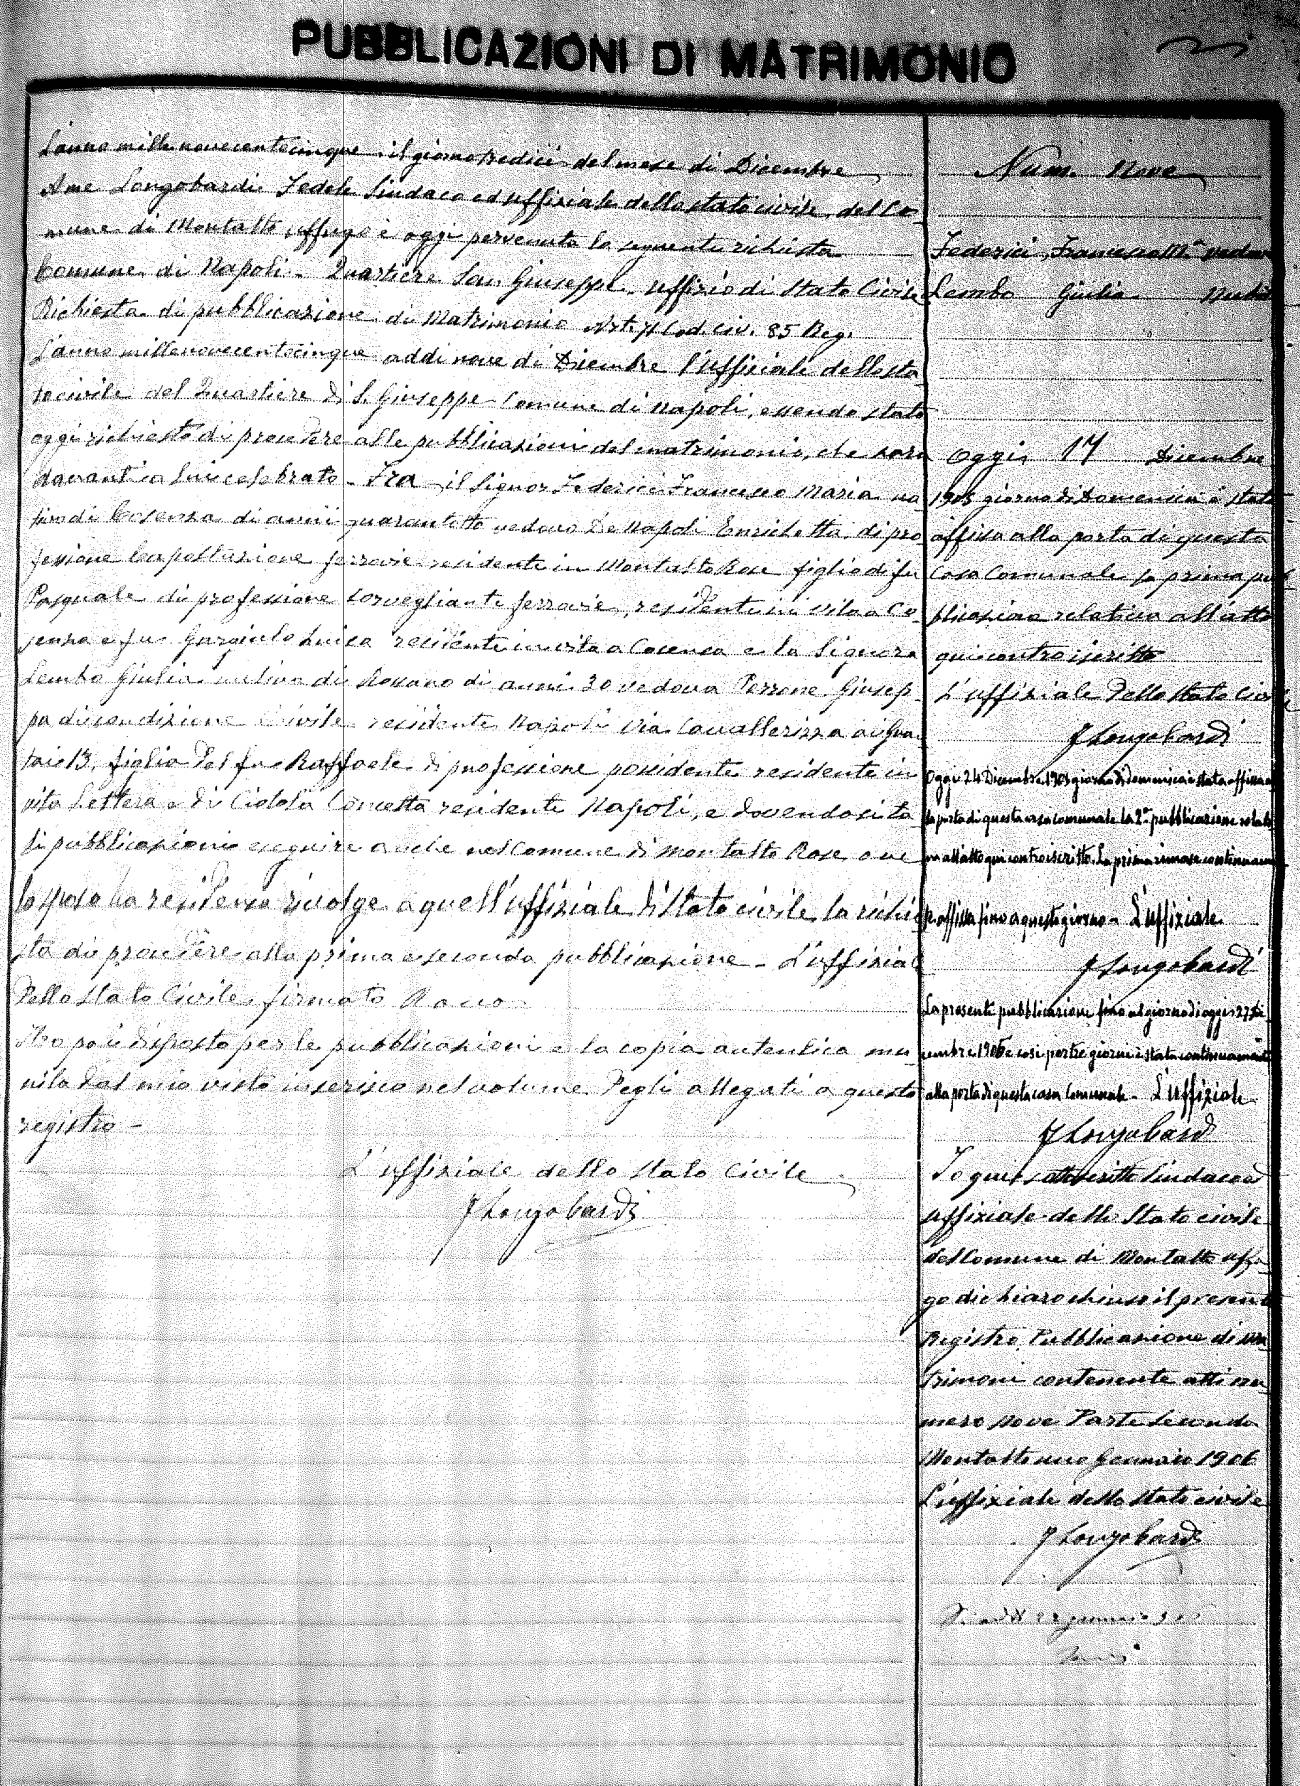 PUBBLICAZIONI DI MATRIMONIO
L'anno millenovecentocinque, il giorno tredici del mese di Dicembre
A me Longobardi Fedele Sindaco ed uffiziale dello stato civile del Co-
mune di Montalto Uffugo è oggi pervenuta la seguente richiesta
Comune di Napoli - Quartiere San Giuseppe - uffizio di Stato Civile
Richiesta di pubblicazione di Matrimonio Art. 71 Cod. civ. 85 Reg.
L'anno millenovecentocinque addì nove di Dicembre l'uffiziale dello sta-
to civile del Quartiere di S. Giuseppe Comune di Napoli, essendo stato
oggi richiesto di procedere alle pubblicazioni del matrimonio, che sarà
davanti a lui celebrato - Fra il Signor Federici Francesco Maria na
tivo di Cosenza di anni quarantotto vedovo De Napoli Enrichetta, di pro
fessione Capostazione ferrovie residente in Montalto Rose figlio di fu
Pasquale di professione sorvegliante ferrovie, residente in vita a Co-
senza e fu Gargiulo Luisa residente in vita a Cosenza e la Signora
Lembo Giulia nativa di Rossano di anni 30 vedova Perrone Giusep-
pe di condizione civile residente Napoli Via Cavallerizza
13, figlia del fu Raffaele di professione possidente residente in
vita Lettera e di Concetta residente Napoli, e dovendosi ta
li pubblicazioni eseguire anche nel Comune di Montalto Rose ove
lo sposo ha residenza rivolge a quell'uffiziale di Stato civile la richie
sta di procedere alla prima e seconda pubblicazione - L'uffiziale
dello Stato Civile, firmato
disposto per le pubblicazioni e la copia autentica mu
nita dal mio visto inserisco nel volume degli allegati a questo
registro -
L'uffiziale dello Stato Civile
F Longobardi
Num. Nove
Federici Francesco M.ª vedovo
Lembo Giulia
Oggi 17 Dicembre
1905 giorno di Domenica è stata
affissa alla porta di questa
Casa Comunale la prima pub
blicazione relativa all'atto
qui controiscritto
L'uffiziale dello Stato Civile
F Longobardi
Oggi 24 Dicembre 1905 giorno di domenica è stata affissa a
la porta di questa casa comunale la 2ª pubblicazione relati
va all'atto qui controiscritto. La prima rimase continuamen
te affissa fino a questo giorno - L'uffiziale
F Longobardi
La presente pubblicazione fino al giorno di oggi 27 Di
cembre 1905 e così per tre giorni è stata continuamente
alla porta di questa casa Comunale - L'uffiziale
F Longobardi
Io qui sottoscritto Sindaco ed
uffiziale dello Stato civile
del Comune di Montalto Uffu-
go dichiaro chiuso il presente
Registro Pubblicazione di ma
trimoni contenente atti nu
mero nove Parte Seconda
Montalto uno Gennaio 1906
L'uffiziale dello Stato civile
F Longobardi